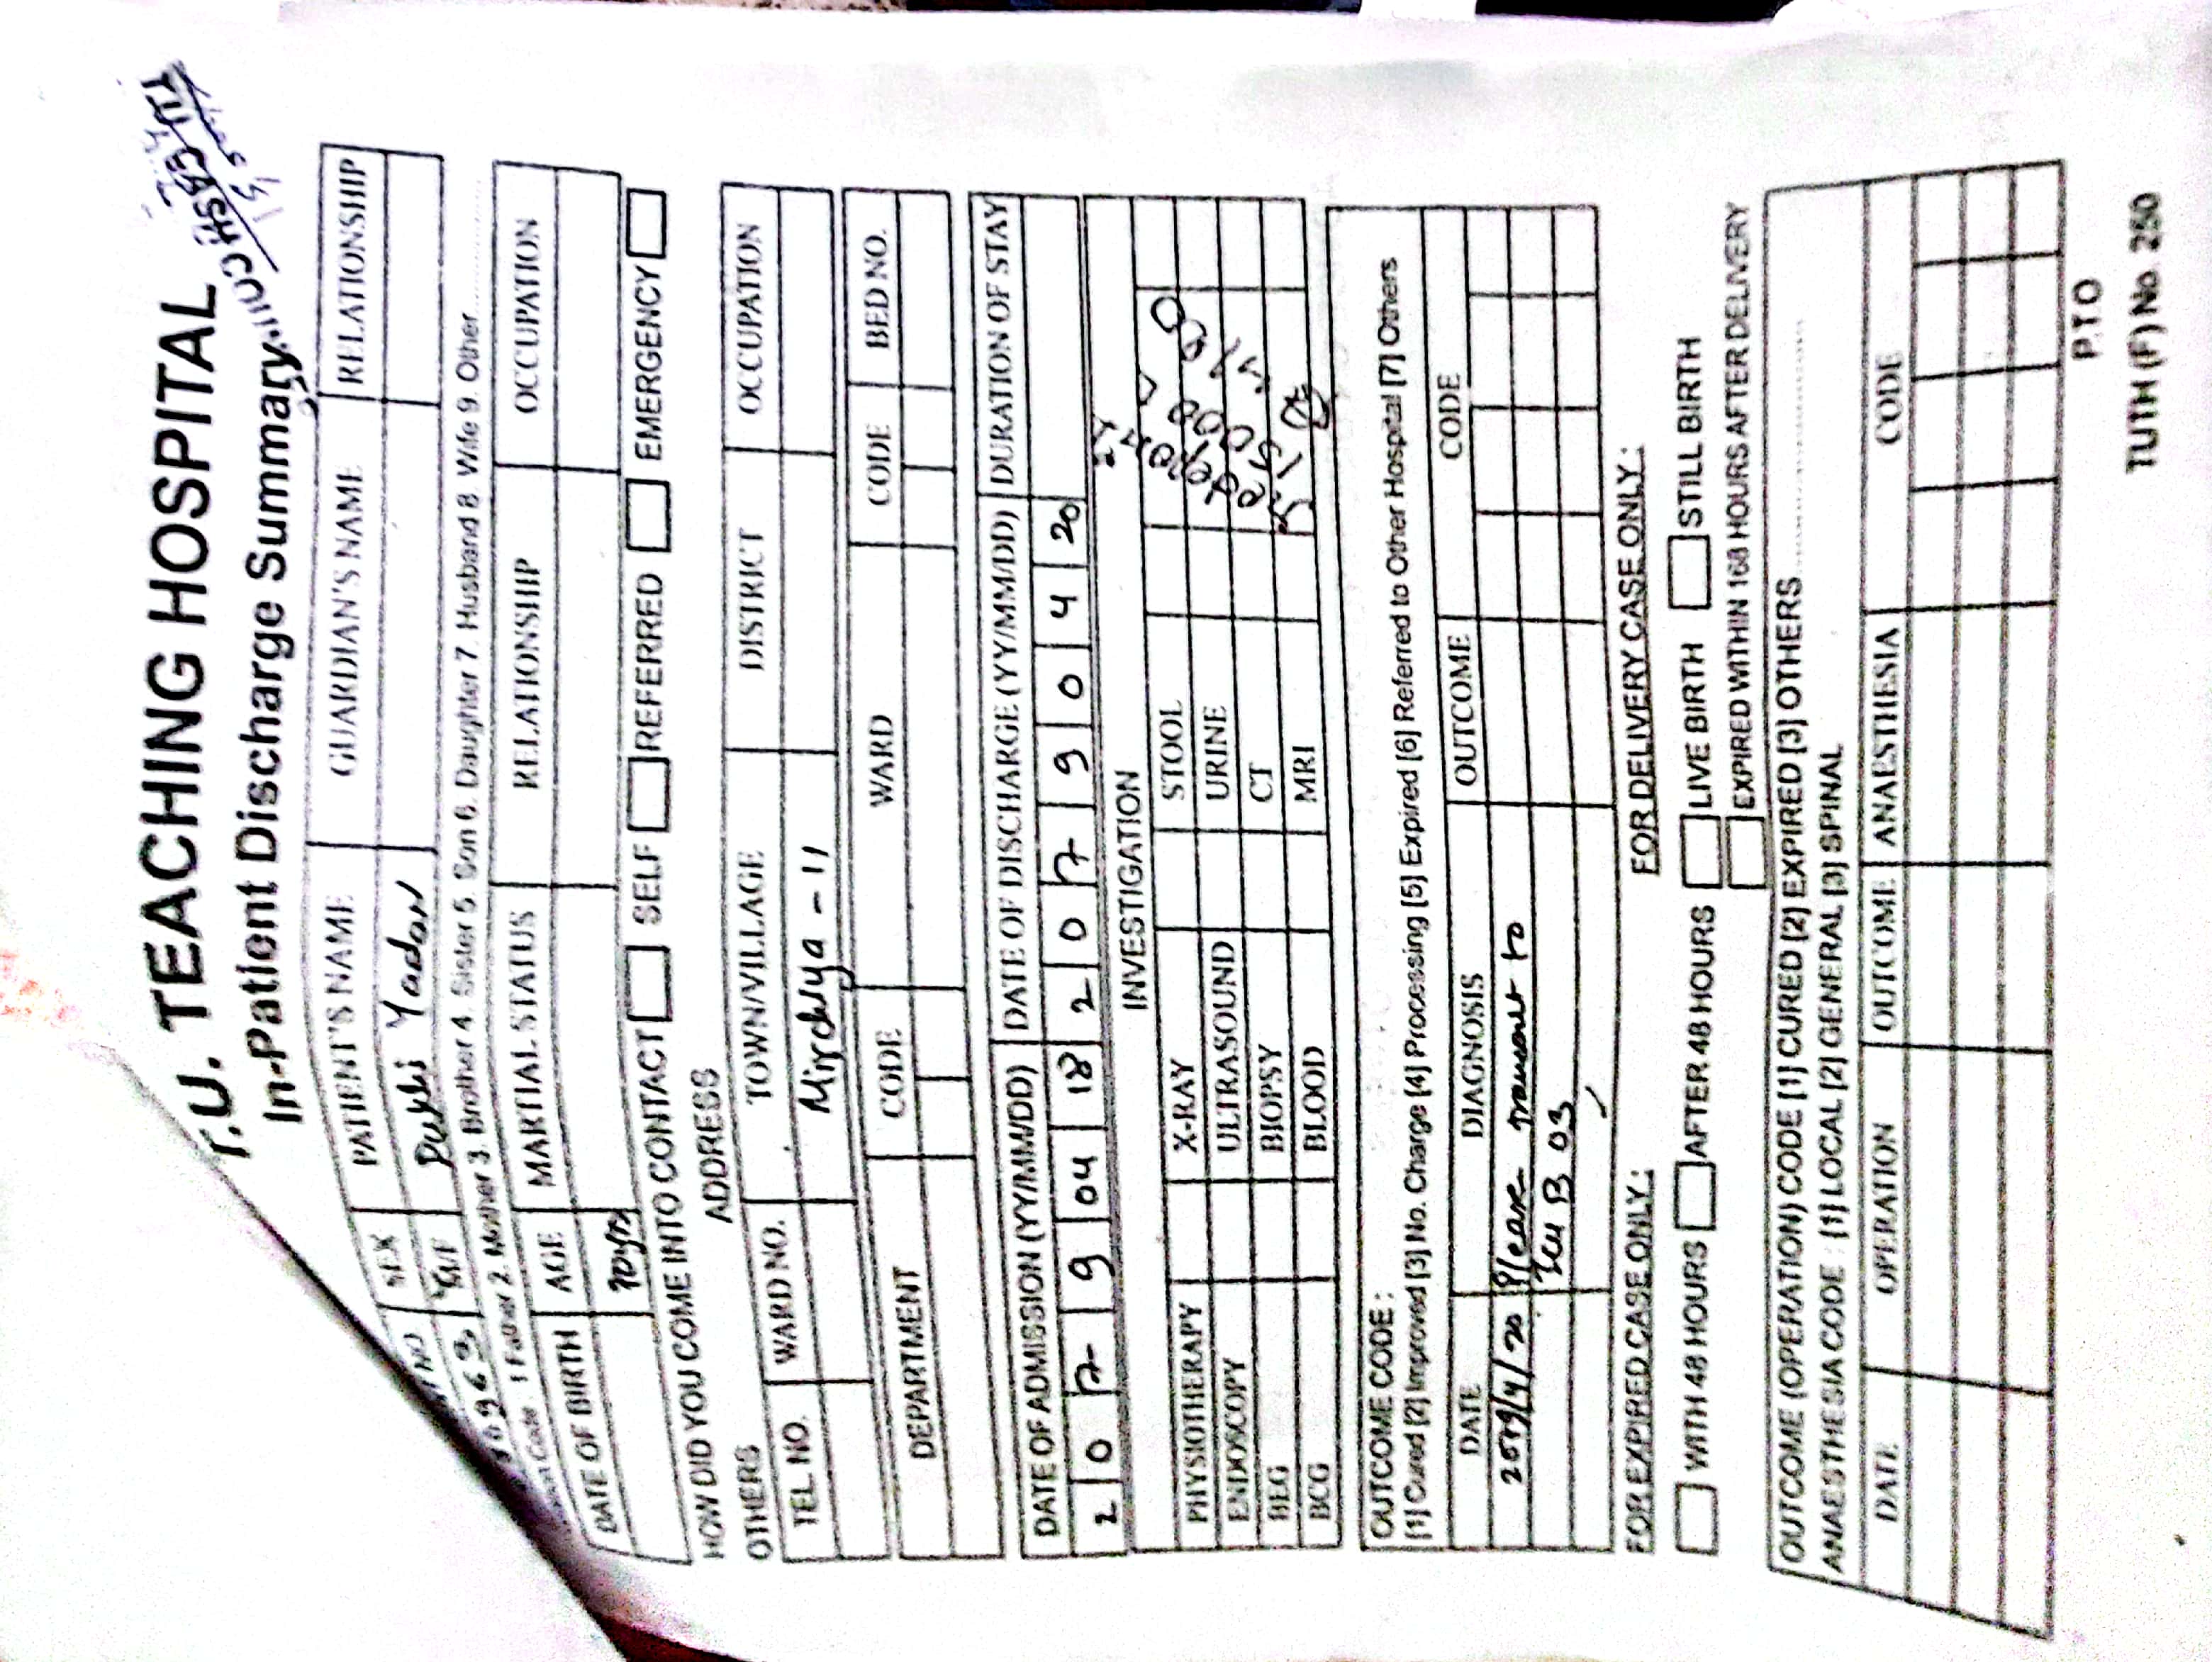 T.U. TEACHING HOSPITAL
In-Patient Discharge Summary
SEX PATIENT'S NAME GUARDIAN'S NAME RELATIONSHIP
M/F Yadav
1 Father 2. Mother 3. Brother 4. Sister 5. Son 6. Daughter 7. Husband 8. Wife 9. Other
DATE OF BIRTH AGE MARTIAL STATUS RELATIONSHIP OCCUPATION
70yrs
HOW DID YOU COME INTO CONTACT SELF REFERRED EMERGENCY
OTHERS ADDRESS
TEL NO. WARD NO. TOWN/VILLAGE DISTRICT OCCUPATION
Mirchiya - 11
DEPARTMENT CODE WARD CODE BED NO.
DATE OF ADMISSION (YY/MM/DD) DATE OF DISCHARGE (YY/MM/DD) DURATION OF STAY
2 0 7 9 04 18 2 0 7 9 0 4 20
INVESTIGATION
PHYSIOTHERAPY X-RAY STOOL
ENDOSCOPY ULTRASOUND URINE
EEG BIOPSY CT
BCG BLOOD MRI
OUTCOME CODE :
[1] Cured [2] Improved [3] No. Charge [4] Processing [5] Expired [6] Referred to Other Hospital [7] Others
DATE DIAGNOSIS OUTCOME CODE
2079/4/20 Please transfer to
ICU B 03
FOR EXPIRED CASE ONLY : FOR DELIVERY CASE ONLY :
WITH 48 HOURS AFTER 48 HOURS LIVE BIRTH STILL BIRTH
EXPIRED WITHIN 168 HOURS AFTER DELIVERY
OUTCOME (OPERATION) CODE [1] CURED [2] EXPIRED [3] OTHERS
ANAESTHESIA CODE : [1] LOCAL [2] GENERAL [3] SPINAL
DATE OPERATION OUTCOME ANAESTHESIA CODE
P.T.O
TUTH (F) No. 250